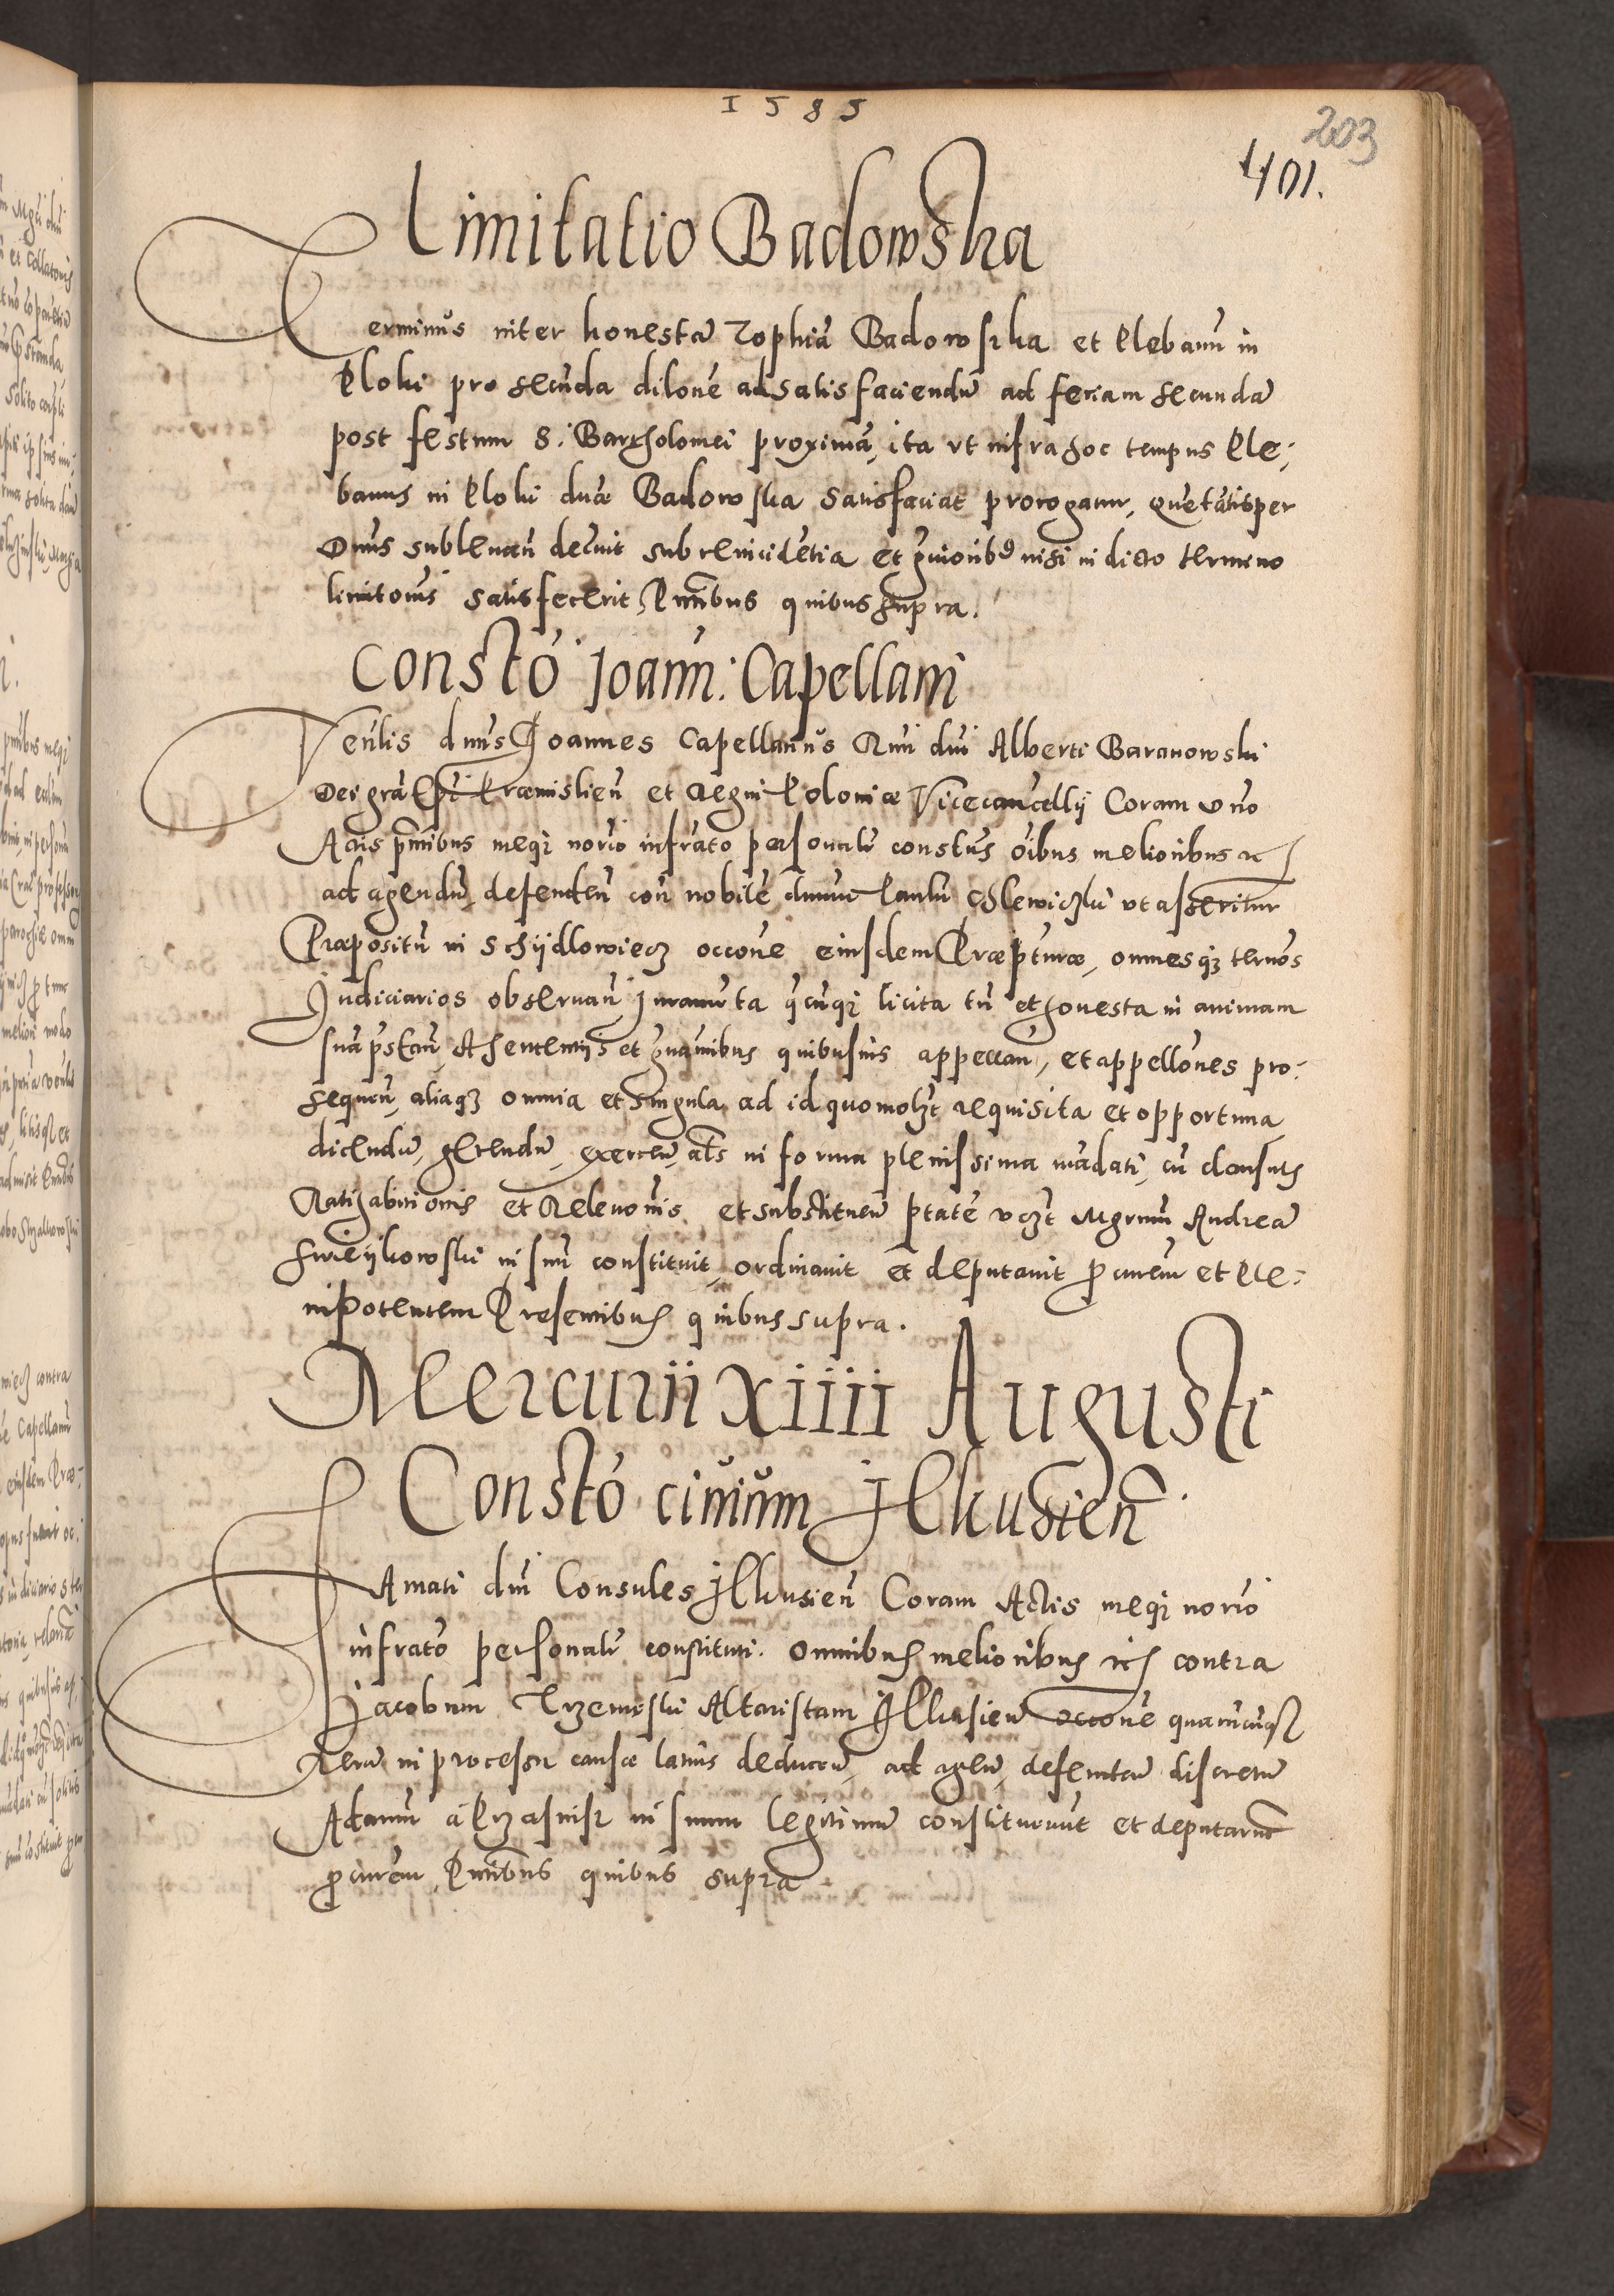 1585
203
401.
Limitatio Badowska
Terminus inter honestā Zophiā Badowska et Plebanū in
Ploki pro secūda dilōne ad satisfaciendū ad feriam secundā
post festum S. Bartholomei proximā, ita vt infra hoc tempus Ple-
banus in Ploki dnæ Badowska satisfaciat prorogatur, quē tātisper
Dnus subleuan̄ decreuit sub reincidētia et nisi in dicto termino
limitōnis satisfecerit, Pn̄tibus quibus supra.
Constō Joann: Capellani
Venlis dnus Joannes Capellanus Rmi dni Alberti Baranowski
Dei grā Epi Præmislien̄ et Regni Poloniæ Vicecancellij Coram
Actis pn̄tibus meqz norio infrato personalr constus oībus melioribus etc
ad agendū, defendēn con nobilē dnum Paulū vt asseritur
Præpositū in Schijdlowiecz occōne eiusdem Præpturæ, omnesqz ternos
Judiciarios obseruan̄ Juramēta qcūqz licita tn̄ et honesta in animam
suā pstan̄, A sententijs et grauaībus quibusuis appellan̄, et appellōnes pro-
sequen̄, aliaqz omnia et singula ad id quomolzt requisita et opportuna
dicendū, gerendū, exercen̄, als in forma plenissima mādati, cū clausulis
Ratihabitionis et Releuōnis et substituen̄ ptatē vzt Mgrum Andreā
in suū constituit, ordinauit et deputauit procurēm et Ple-
nipotentem Presentibus quibus supra.
Mercurii XIIII Augusti
Constō ciuium Ilkusien̄
Famati dni Consules Ilkusien̄ Coram Actis meqz norio
infrato personalr constituti. Omnibus melioribus etc contra
Jacobum Trzemeski Altaristam Ilkusien̄ occōne quarūcūqz
Rerū in processu causæ latius deducen̄, ad agen̄, defenden̄ discretū
Adamū a in suum legitimū constituerunt et deputarūt
procurēm Pn̄tibus quibus supra